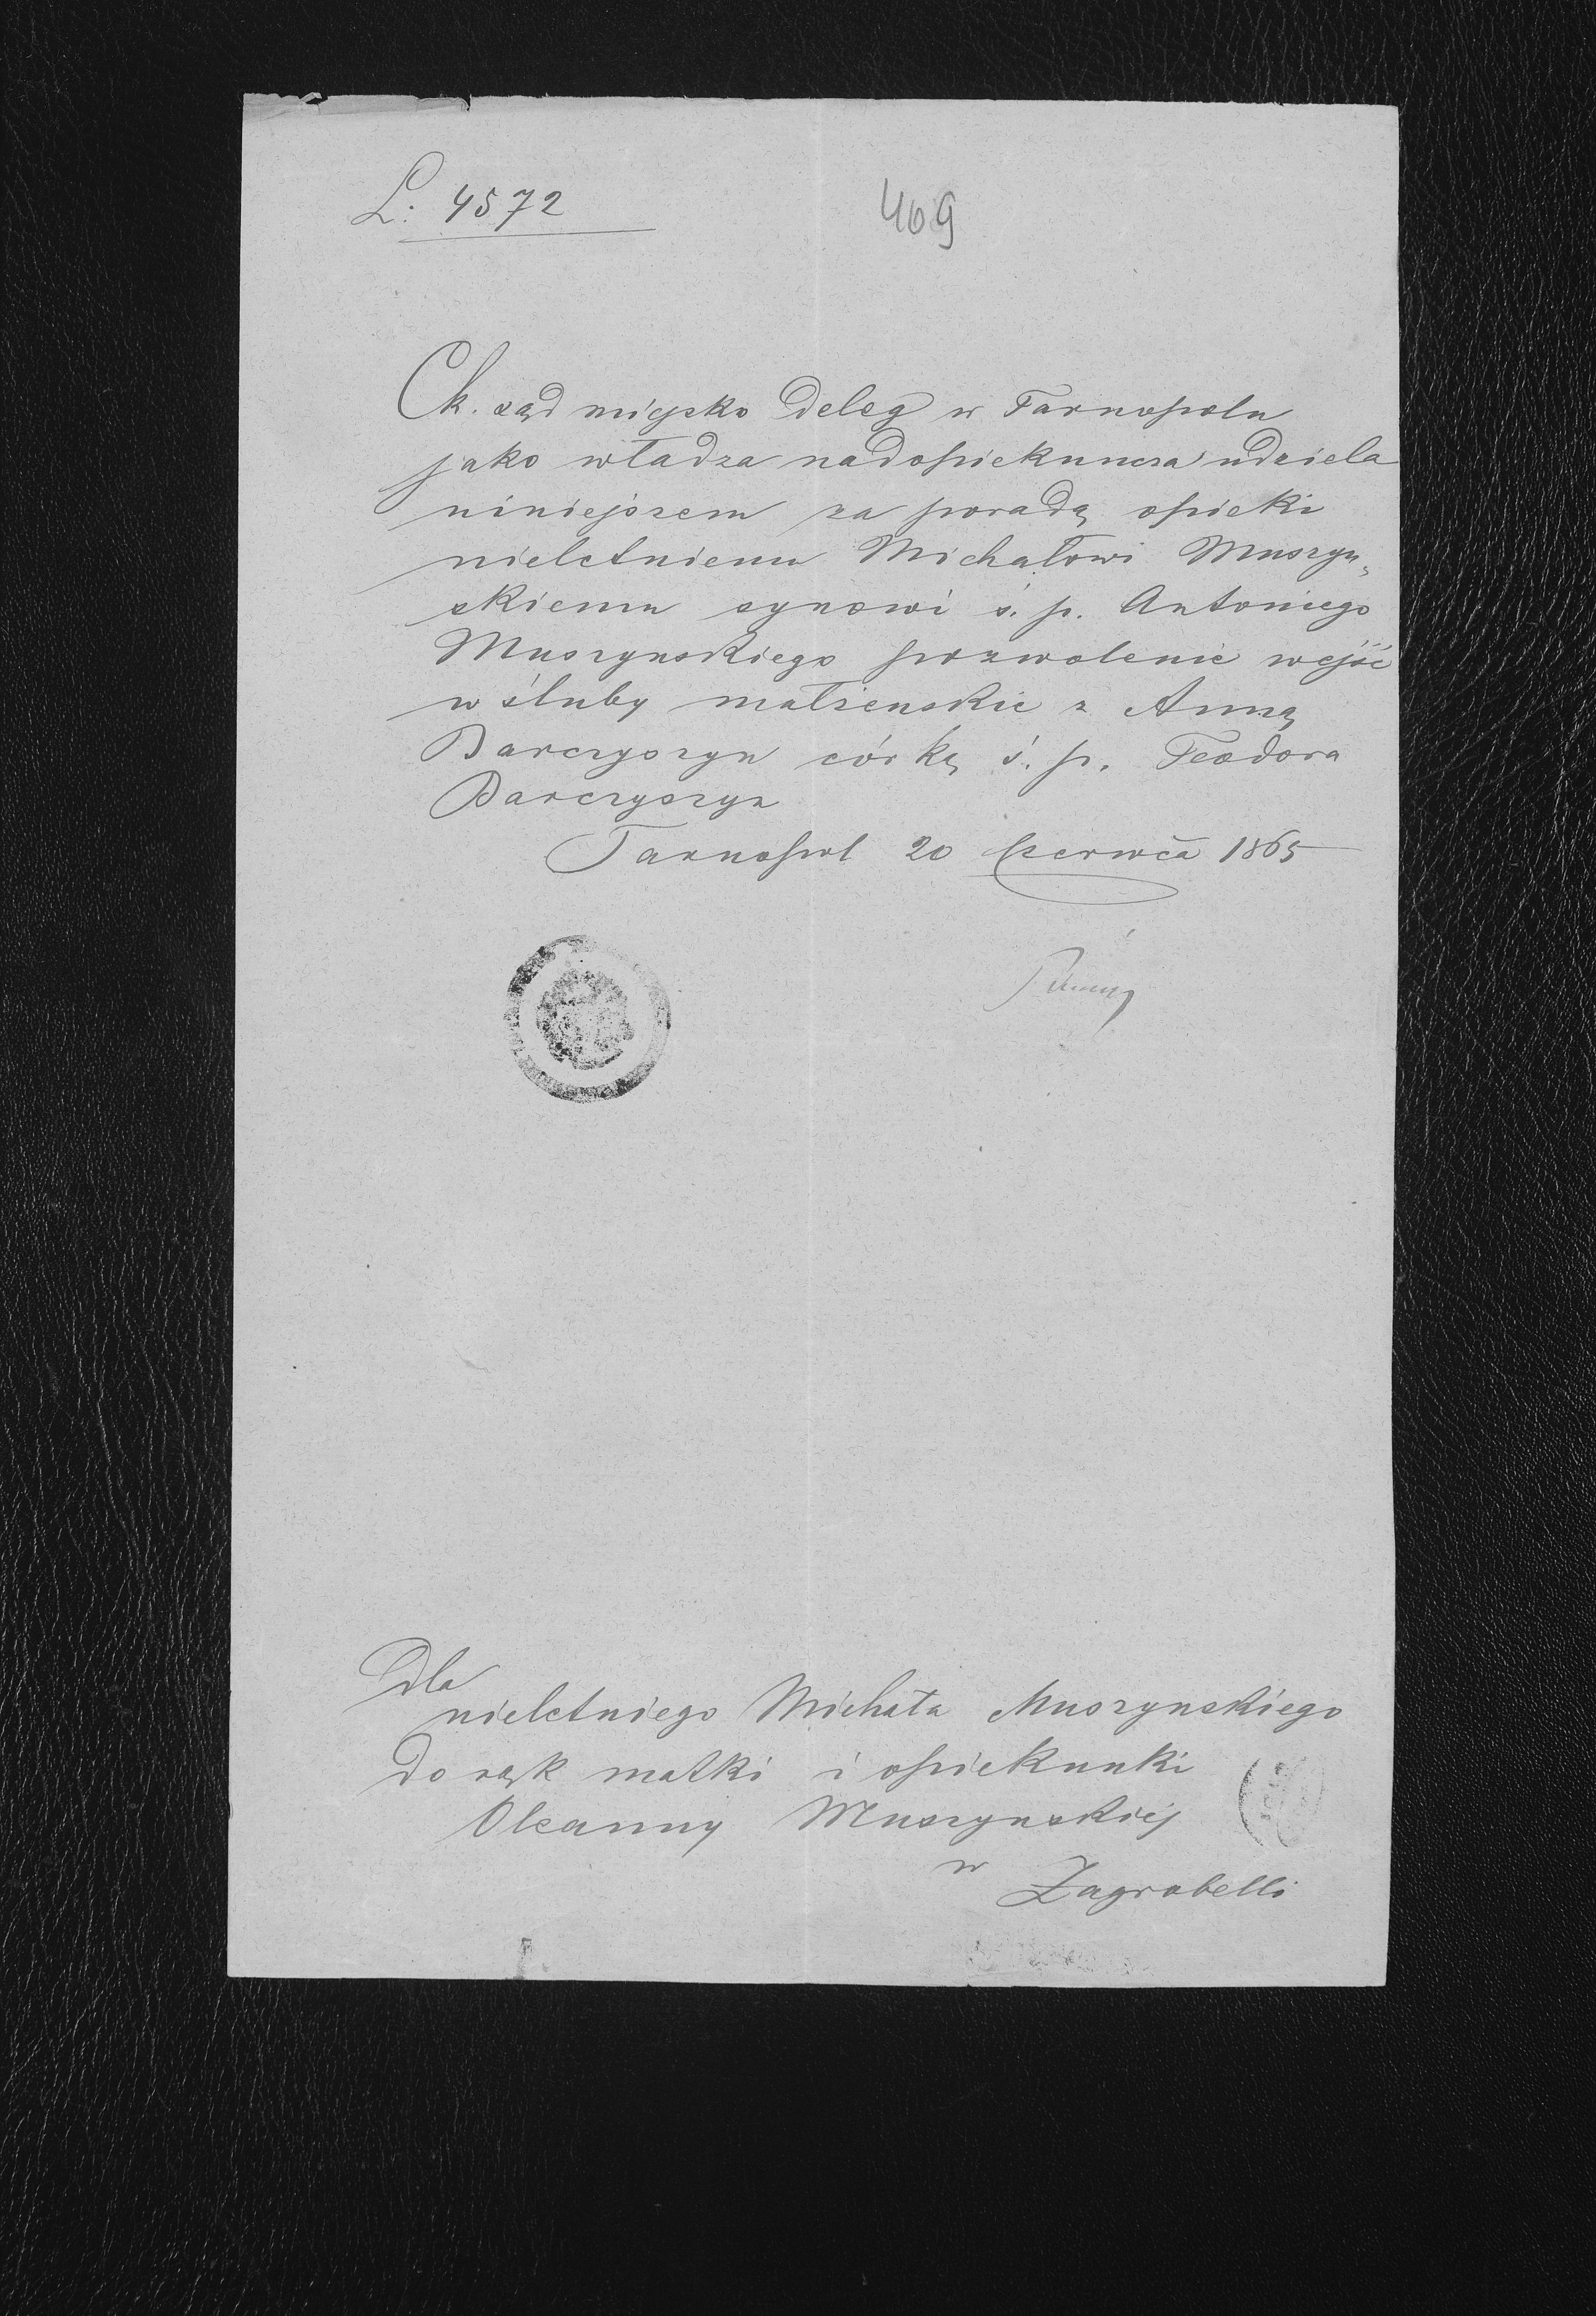 L: 4572
469
Ck. sąd miejsko deleg w Tarnopolu
jako władza nadopiekuncza udziela
niniejszem za poradą opieki
nieletniemu Michałowi Muszyn„
skiemu synowi ś. p. Antoniego
Muszynskiego pozwolenie wejść
w śluby małżenskie z Anną
Barczyszyn córką ś. p. Teodora
Barczyszyn
Tarnopol 20 Czerwca 1865
Dla
nieletniego Michała Muszynskiego
do rąk matki i opiekunki
Oleanny Muszynskiéj
w
Zagrobelli